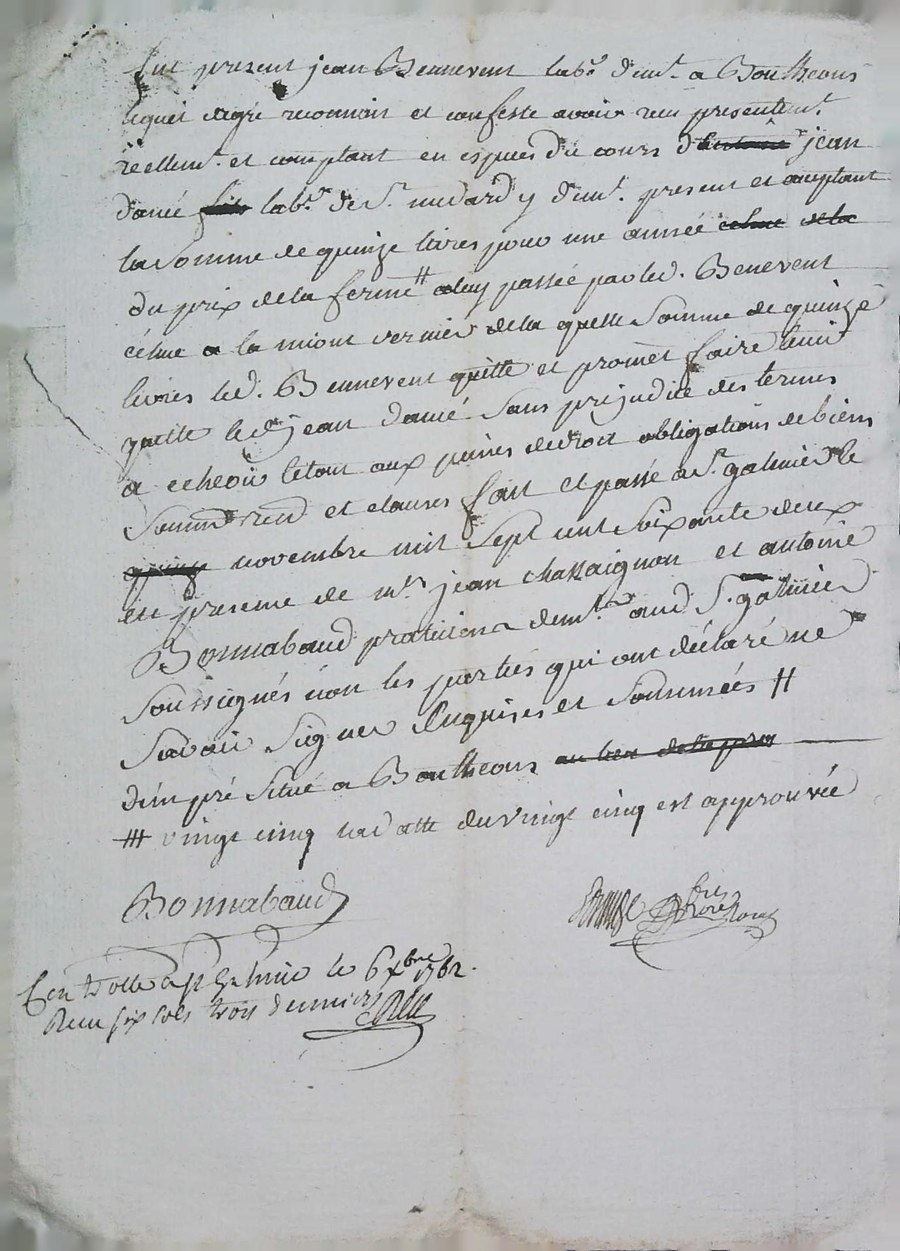 fut present jean Bennevent labr. demt. a Boutheons
lequel degré reconnoit et confesse avoir recu presentemt.
reellemt. et comptant en especes du cours d'antoine jean
dancé fils labr. de St. medard y demt. present et acceptant
la somme de quinze livres pour une année celue de la
du prix de la ferme # passée par led. Benevent
celue a la miout dernier de la quelle somme de quinze
livres led. Bennevent quitte et promet faire tenir
quitte led. jean dancé sans prejudice des termes
a echeoir le tout aux peines de droit obligations de biens
soumons renon et clauses fait et passé a St. galmier le
quinze novembre mil sept cent soixante deux
en presence de mrs jean chassaignon et antoine
Bonnabaud praticiens demts. aud St. galmier
soussignés non les parties qui ont déclaré ne
savoir signer enquises et sommées #
d'un pré situé a Boutheons au lieu de
vingt cinq la datte du vingt cinq est approuvée
Bonnabaud
Controllé a St Galmier le 6 xbre 1762.
Recu six sols trois deniers